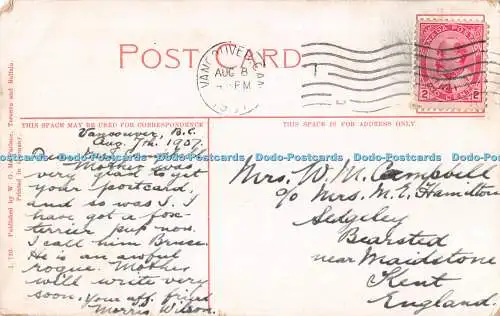 POST CARD
VANCOUVER, CAN.
AUG 8
PM
CANADA POSTAGE
2 CENTS 2
THIS SPACE MAY BE USED FOR CORRESPONDENCE
THIS SPACE IS FOR ADDRESS ONLY.
Vancouver, B.C.
Aug. 7th, 1907.
Dear
Mother was
very glad to get
your postcard,
and so was I. I
have got a fox-
terrier pup now.
I call him Bruce.
He is an awful
rogue. Mother
will write very
soon. Your aff. friend
Morris Wilson.
Mrs. W. M. Campbell
c/o Mrs. M. E. Hamilton
Sedgeley
Bearsted
near Maidstone
Kent
England.
Published by W. G. MacFarlane, Toronto and Buffalo.
Printed in Germany.
Dodo-Postcards Dodo-Postcards Dodo-Postcards Dodo-Postcards